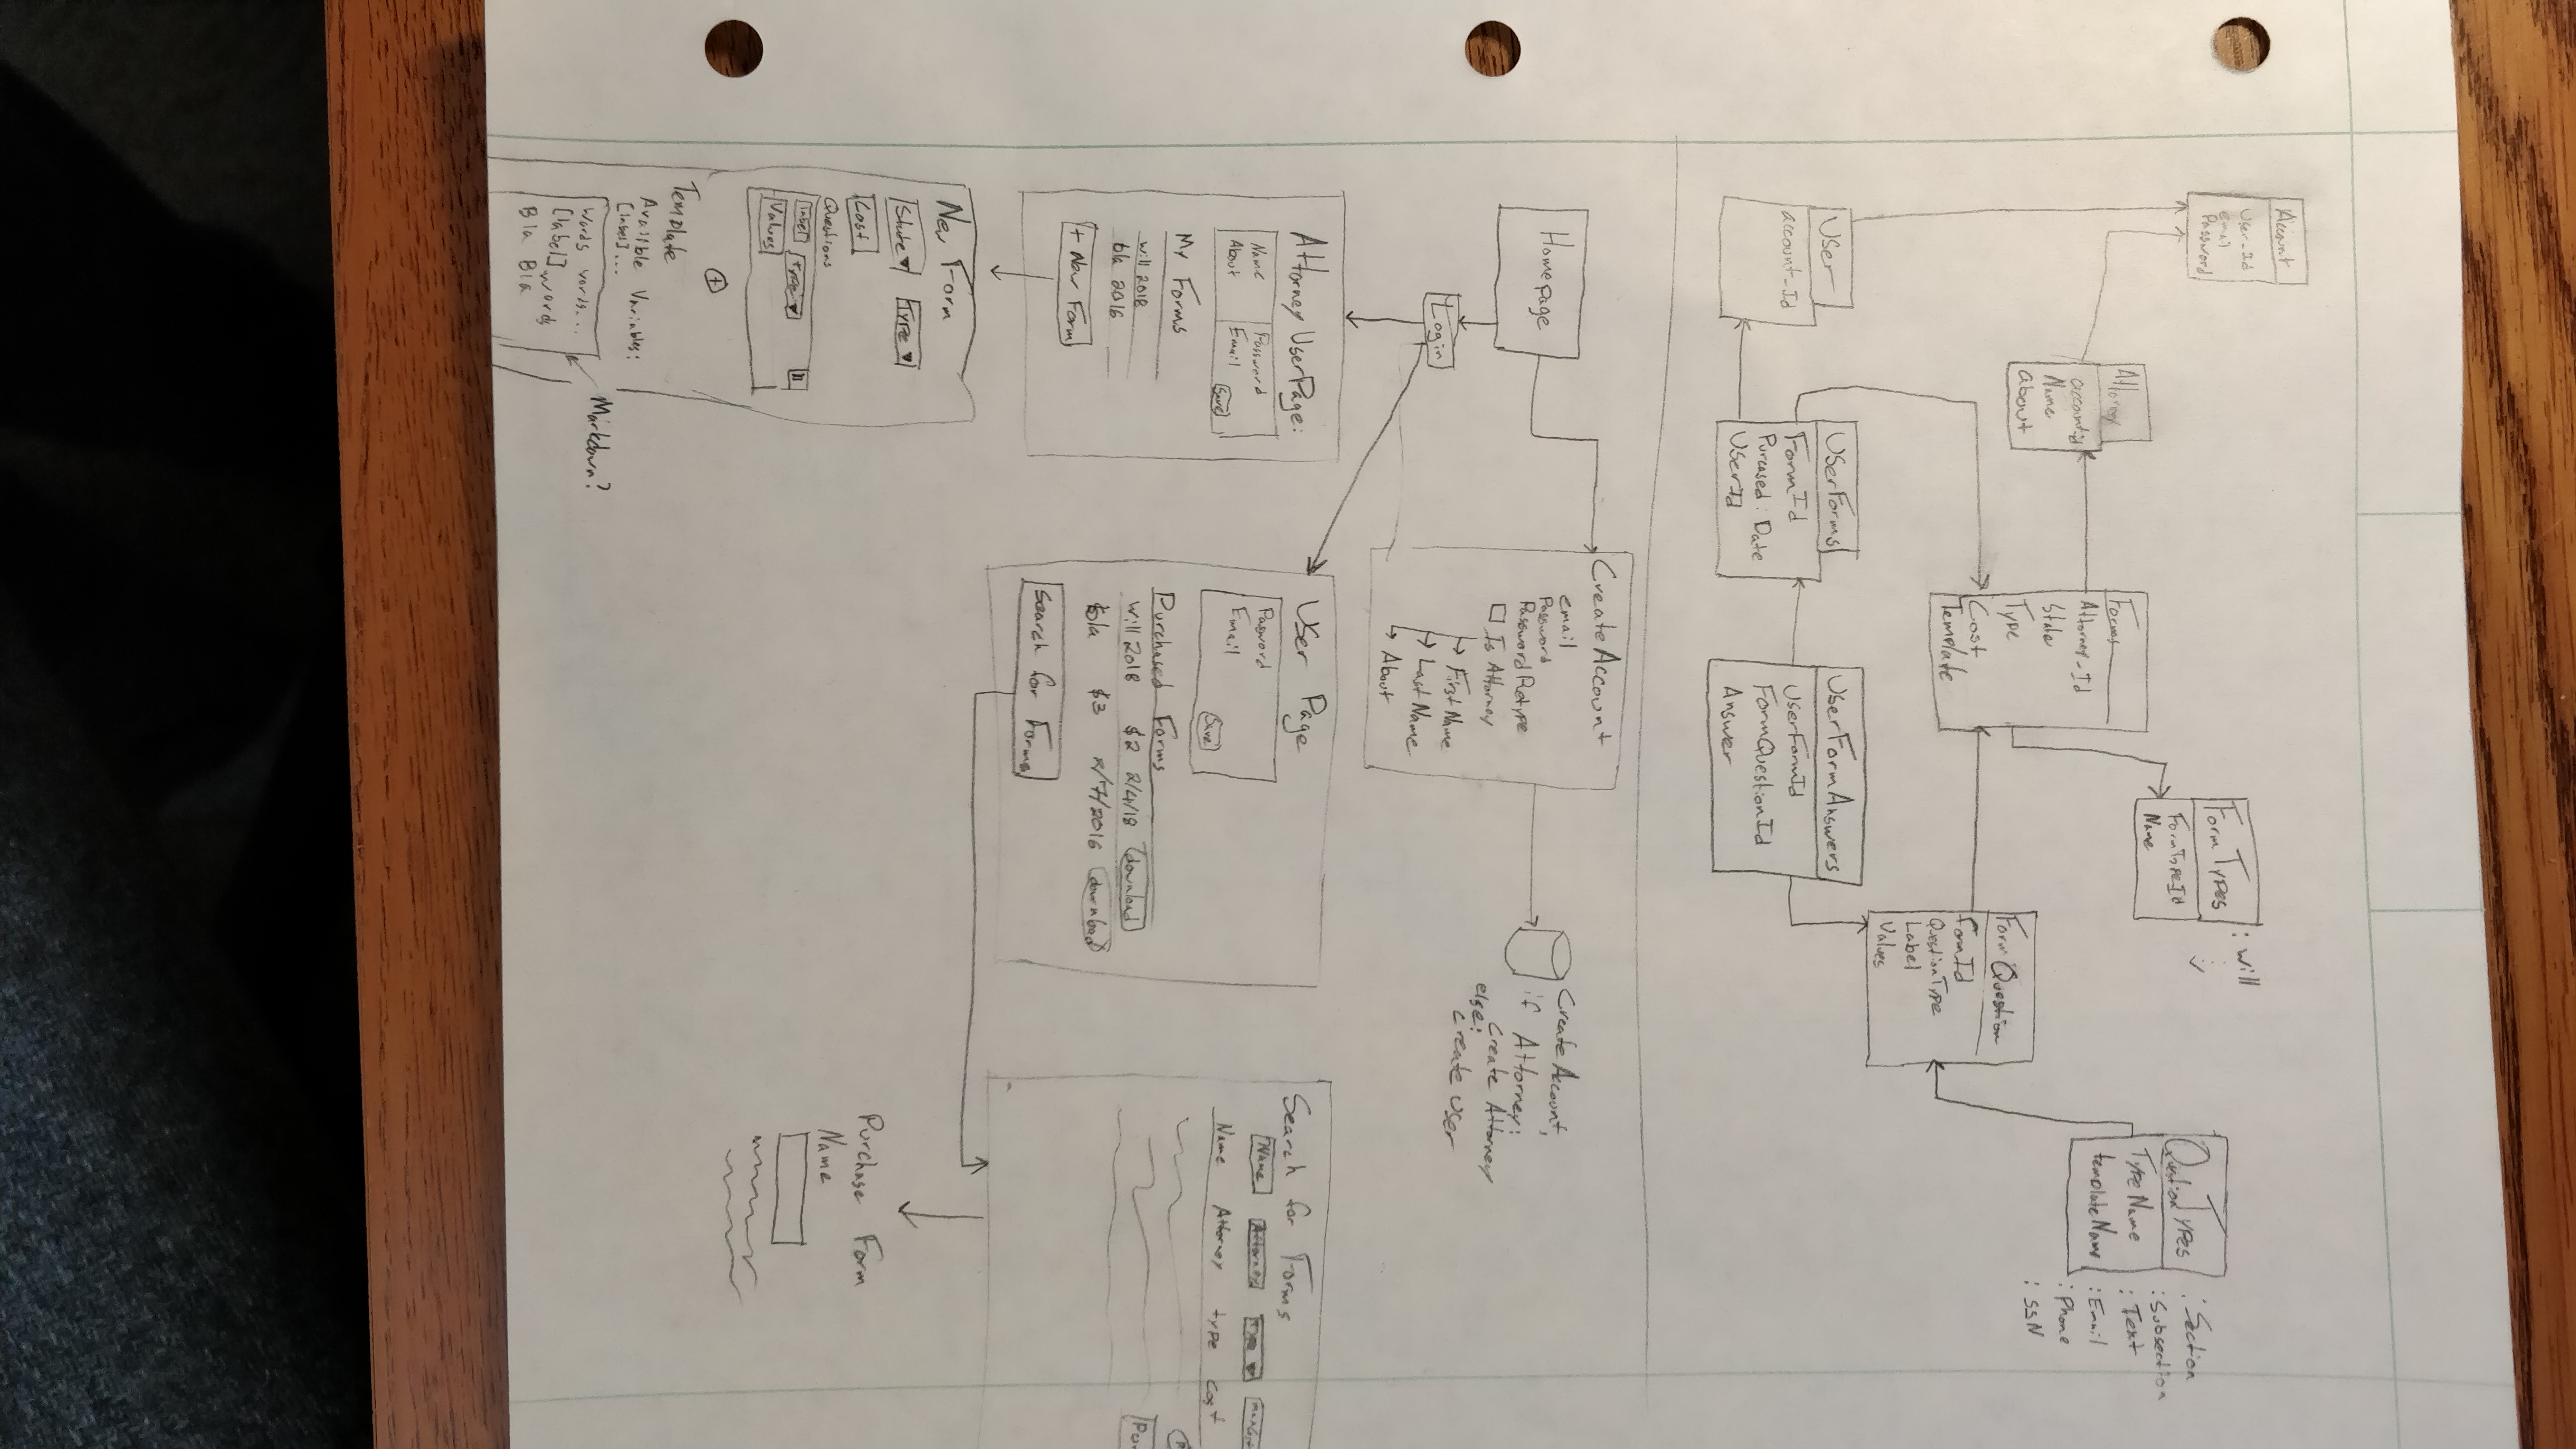 Account
User_Id
email
Password
Attorney
account_id
Name
about
Forms
Attorney_Id
State
Type
Cost
Template
Form Types
FormTypeId
Name
: will
Question Types
TypeName
templateName
: Section
: Subsection
: Text
: Email
: Phone
: SSN
Form Question
formId
QuestionType
Label
Values
User
account_Id
UserForms
FormId
Purcased: Date
UserId
UserFormAnswers
UserFormId
FormQuestionId
Answer
Homepage
Login
Create Account
email
Password
Password Retype
Is Attorney
First Name
Last Name
About
Create Account,
if Attorney:
Create Attorney
else:
create user
Attorney UserPage:
Name Password
About Email
Save
My Forms
will 2018
bla 2016
+ New Form
User Page
Pasword
Email
Save
Purchased Forms
will 2018 $2 2/4/18 download
bla $3 /7/2016 download
Search for Forms
Search for Forms
Name Attorney Type
Name Attorney type cost
Pu
Purchase Form
Name
New Form
State Type
Cost
Questions
label type
Values
+
Template
Availble Variables:
[label]...
Words words...
[label] words
Bla Bla
Markdown?